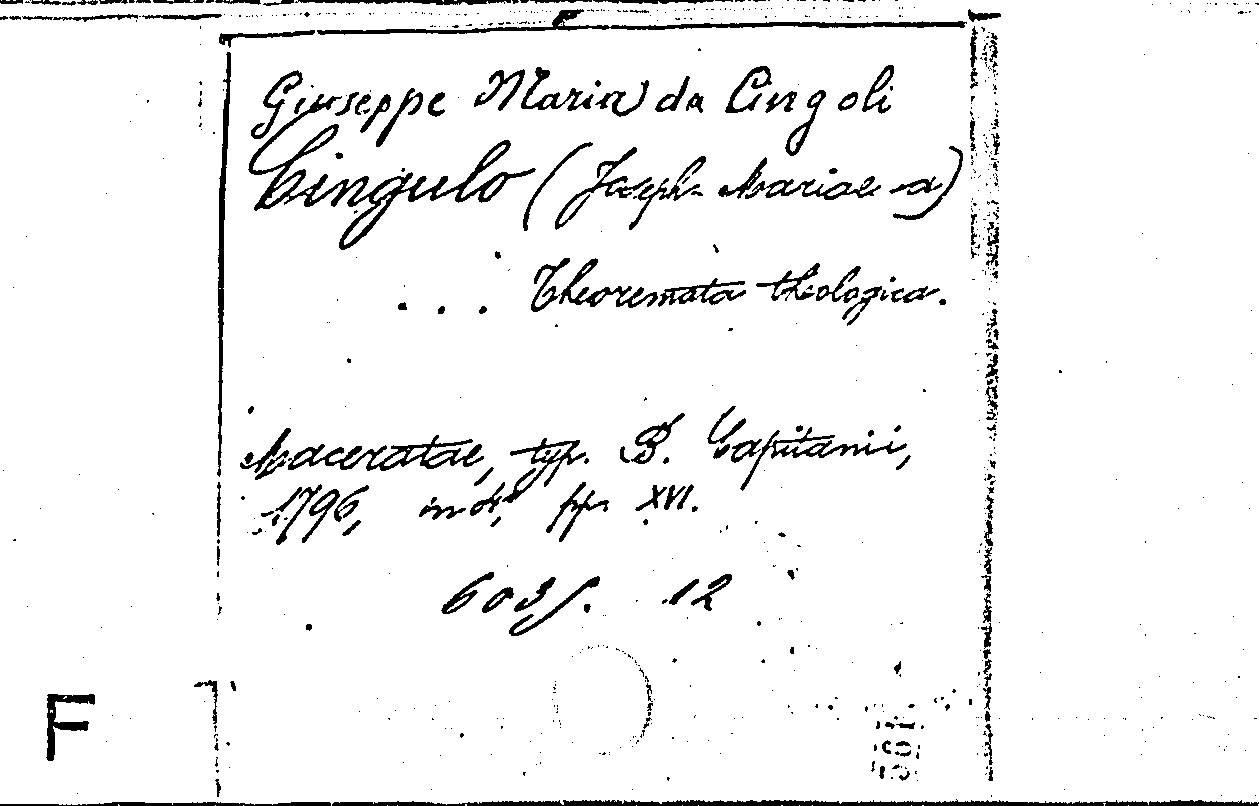 Giuseppe Maria da Cingoli
Cingulo (Joseph Mariae a)
. . . Theoremata theologica.
Maceratae, typ. B. Capitanii,
1796, in 4º, pp. XVI.
603 12
F